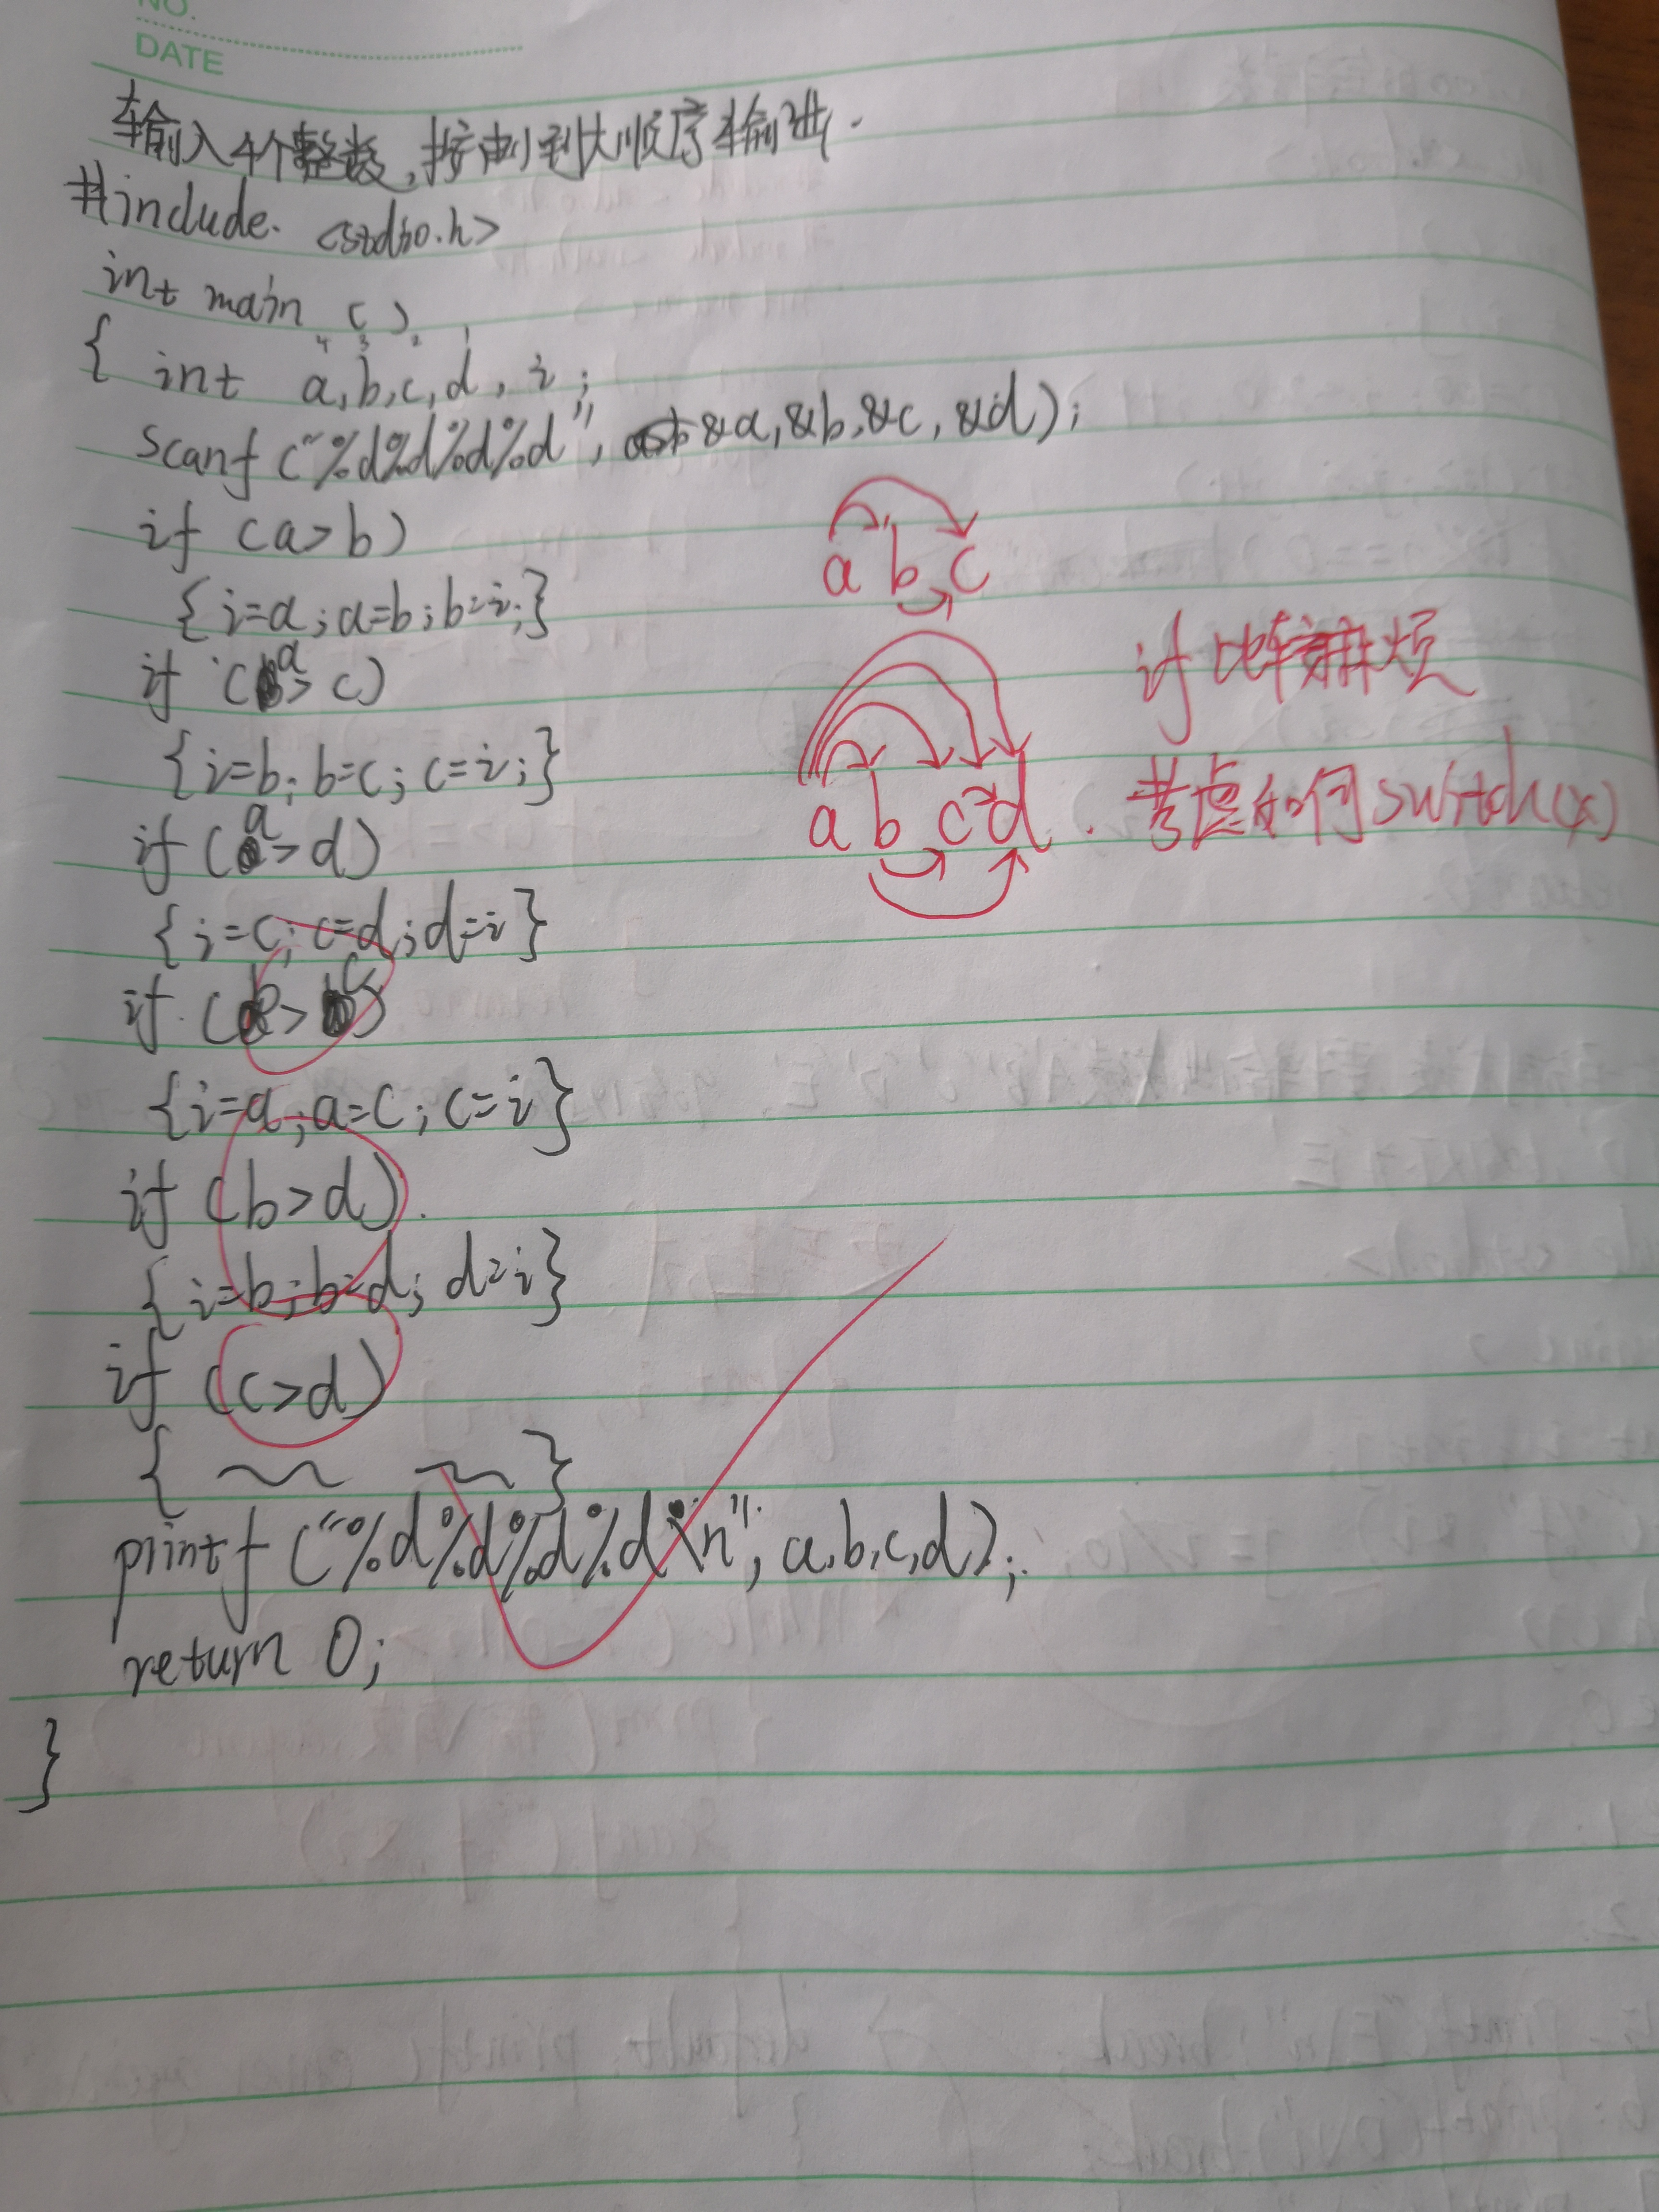 NO.
DATE
输入4个整数,按由小到大顺序输出.
#include. <stdio.h>
int main ( )
4 3 2 1
{ int a,b,c,d,i;
scanf ("%d%d%d%d", &a,&b,&c,&d);
if (a>b)
{i=a;a=b;b=i;}
if (a> c)
{i=b; b=c; c=i;}
if (a> d)
{i=c; c=d;d=i}
if (b> c)
{i=a;a=c; c=i}
if (b>d).
{i=b;b=d; d=i}
if (c>d)
{ }
printf ("%d%d%d%d\n", a,b,c,d);
return 0;
}
a b c
a b c d.
if 比较麻烦
考虑如何switch(x)